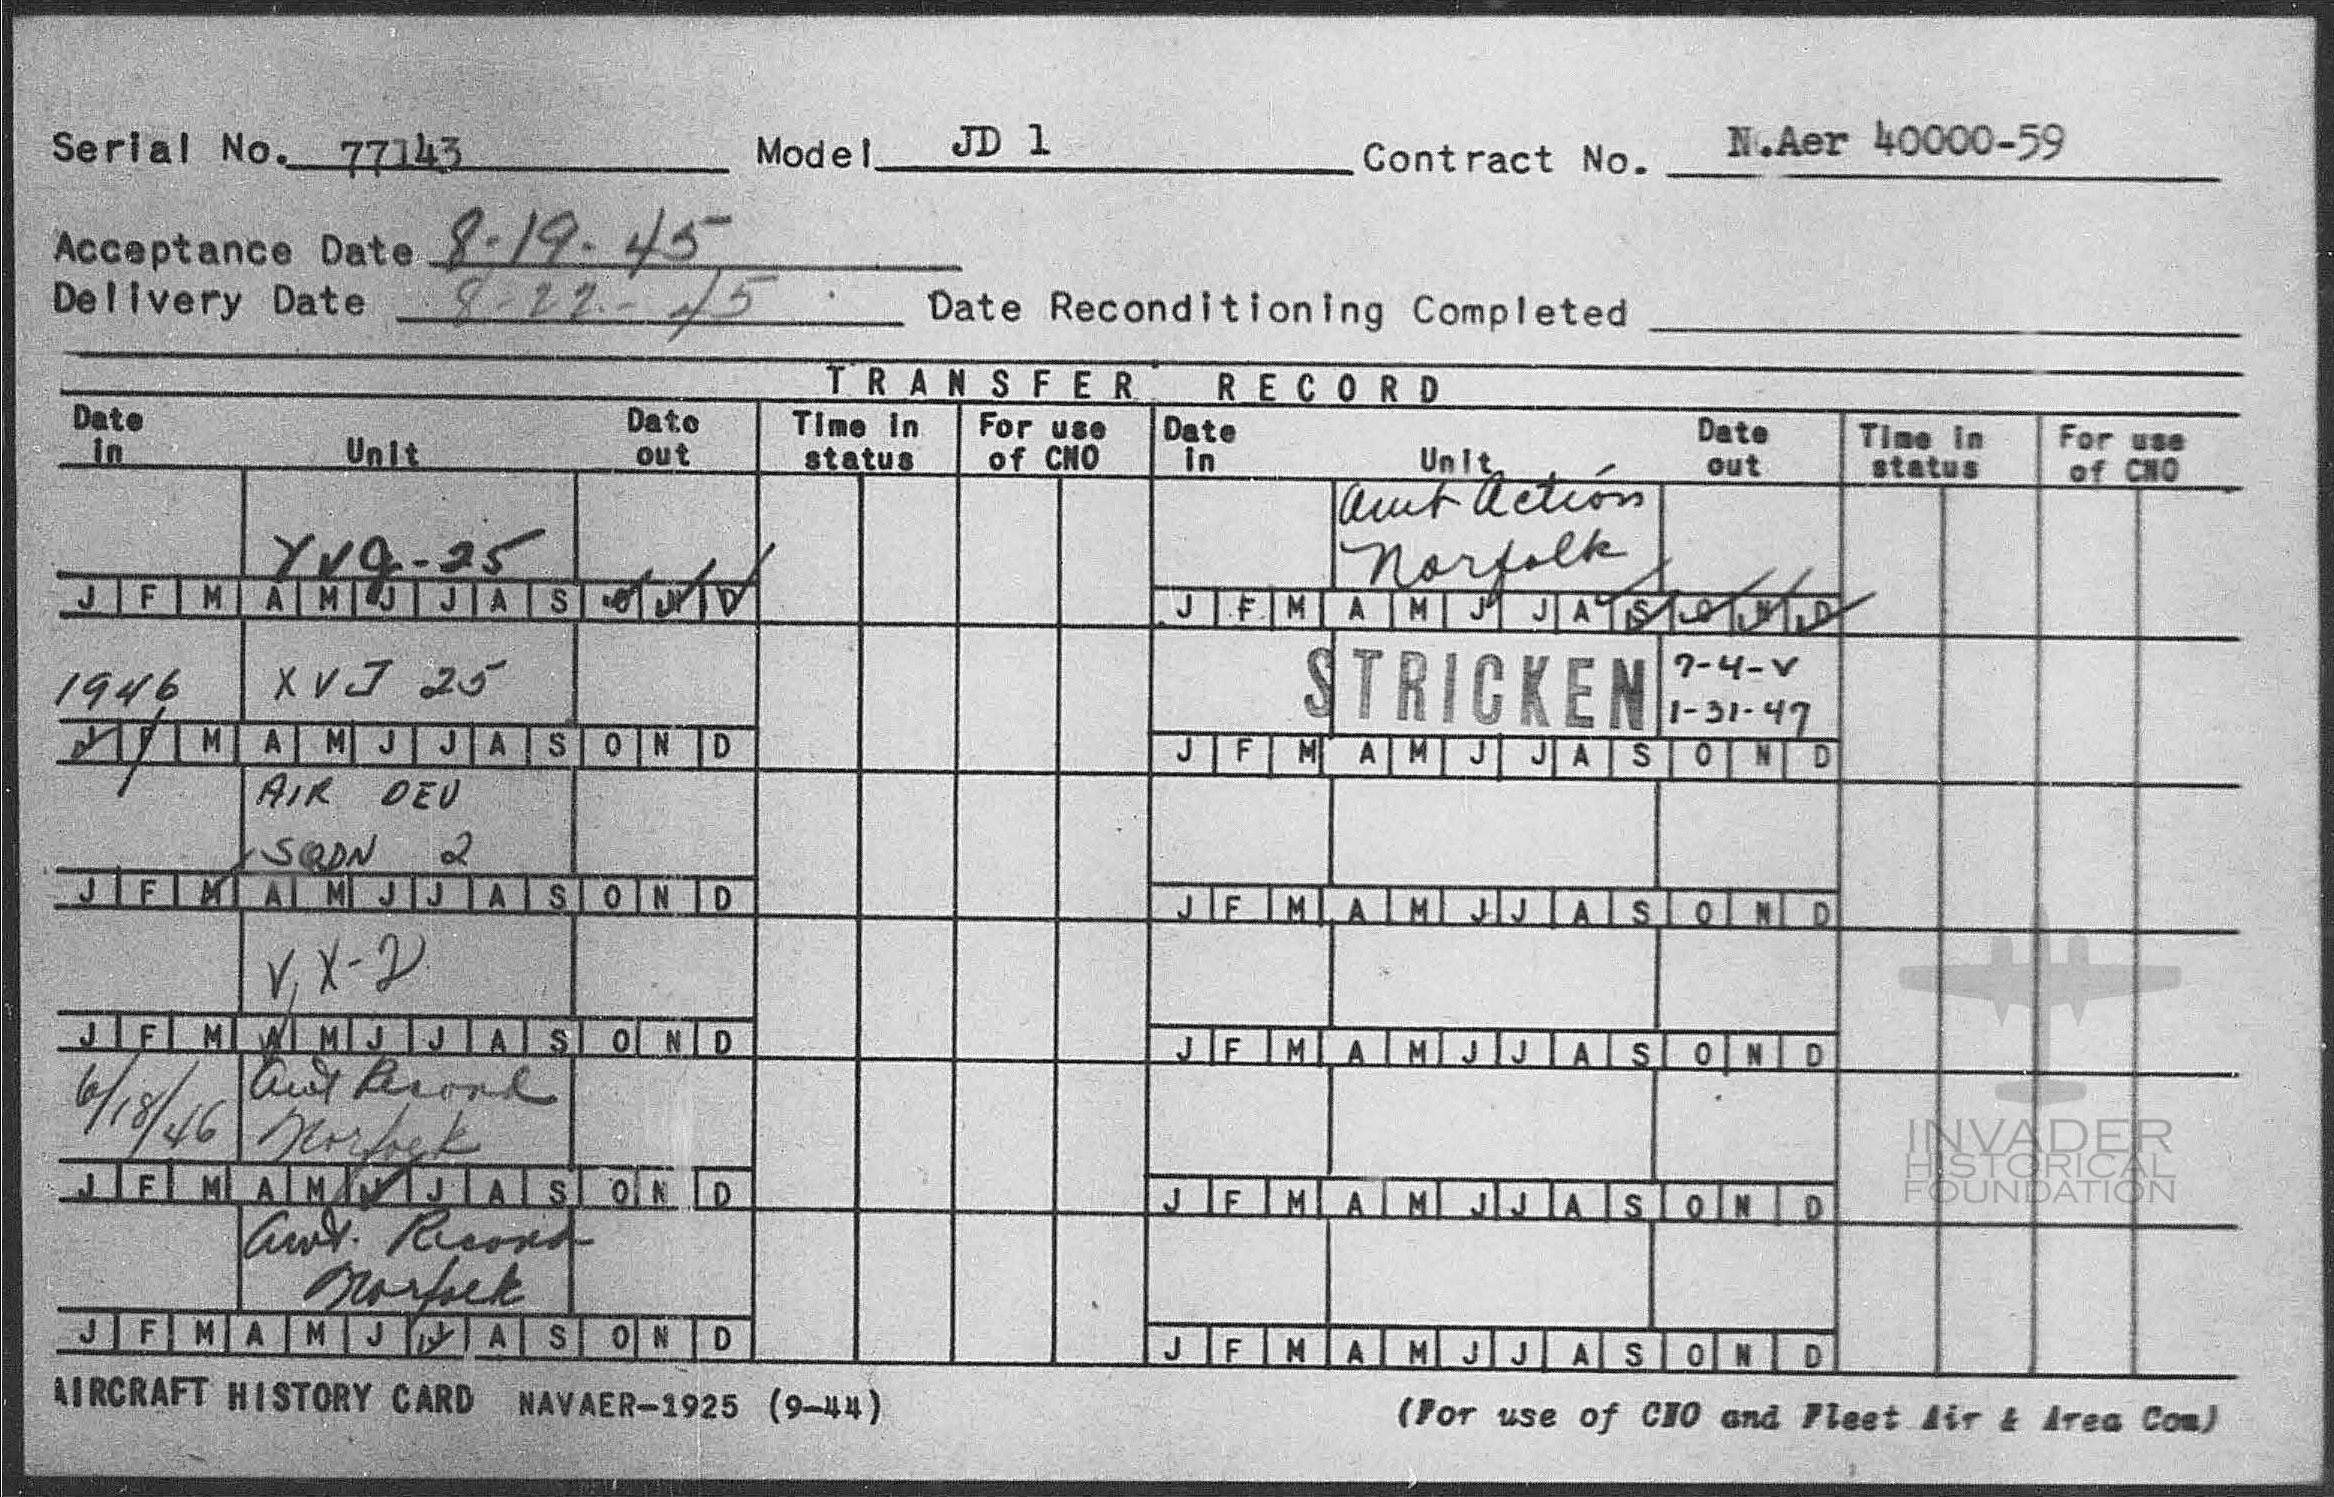 Serial No. 77143 Model JD 1 Contract No. N.Aer 40000-59
Acceptance Date 8-19-45
Delivery Date 8-22-45 Date Reconditioning Completed
TRANSFER RECORD
Date in Unit Date out Time in status For use of CNO Date in Unit Date out Time in status For use of CNO
XVJ-25
J F M A M J J A S O N D
1946 XVJ 25
J F M A M J J A S O N D
AIR DEV
SQDN 2
J F M A M J J A S O N D
VX-2
J F M A M J J A S O N D
6/18/46 Awt Recond
Norfolk
J F M A M J J A S O N D
Awt. Recond
Norfolk
J F M A M J J A S O N D
Awt Action
Norfolk
J F M A M J J A S O N D
STRICKEN 7-4-V
1-31-47
J F M A M J J A S O N D
J F M A M J J A S O N D
J F M A M J J A S O N D
J F M A M J J A S O N D
J F M A M J J A S O N D
INVADER
HISTORICAL
FOUNDATION
AIRCRAFT HISTORY CARD NAVAER-1925 (9-44)
(For use of CNO and Fleet Air & Area Com)